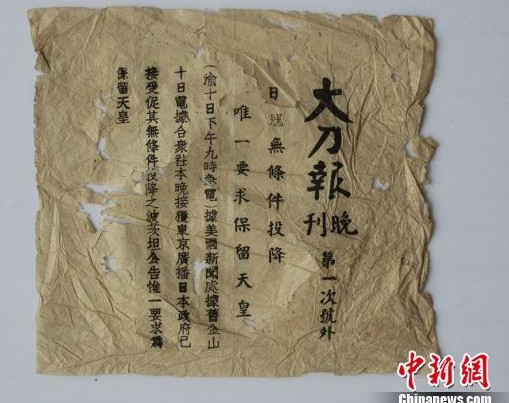 大刀報
晚刊
第一次號外
日無條件投降
唯一要求保留天皇
(渝十日下午九時急電)據美國新聞處據舊金山
十日電據合衆社本晚接獲東京廣播日本政府已
接受促其無條件投降之波茨坦公告惟一要求爲
保留天皇
中新網
Chinanews.com